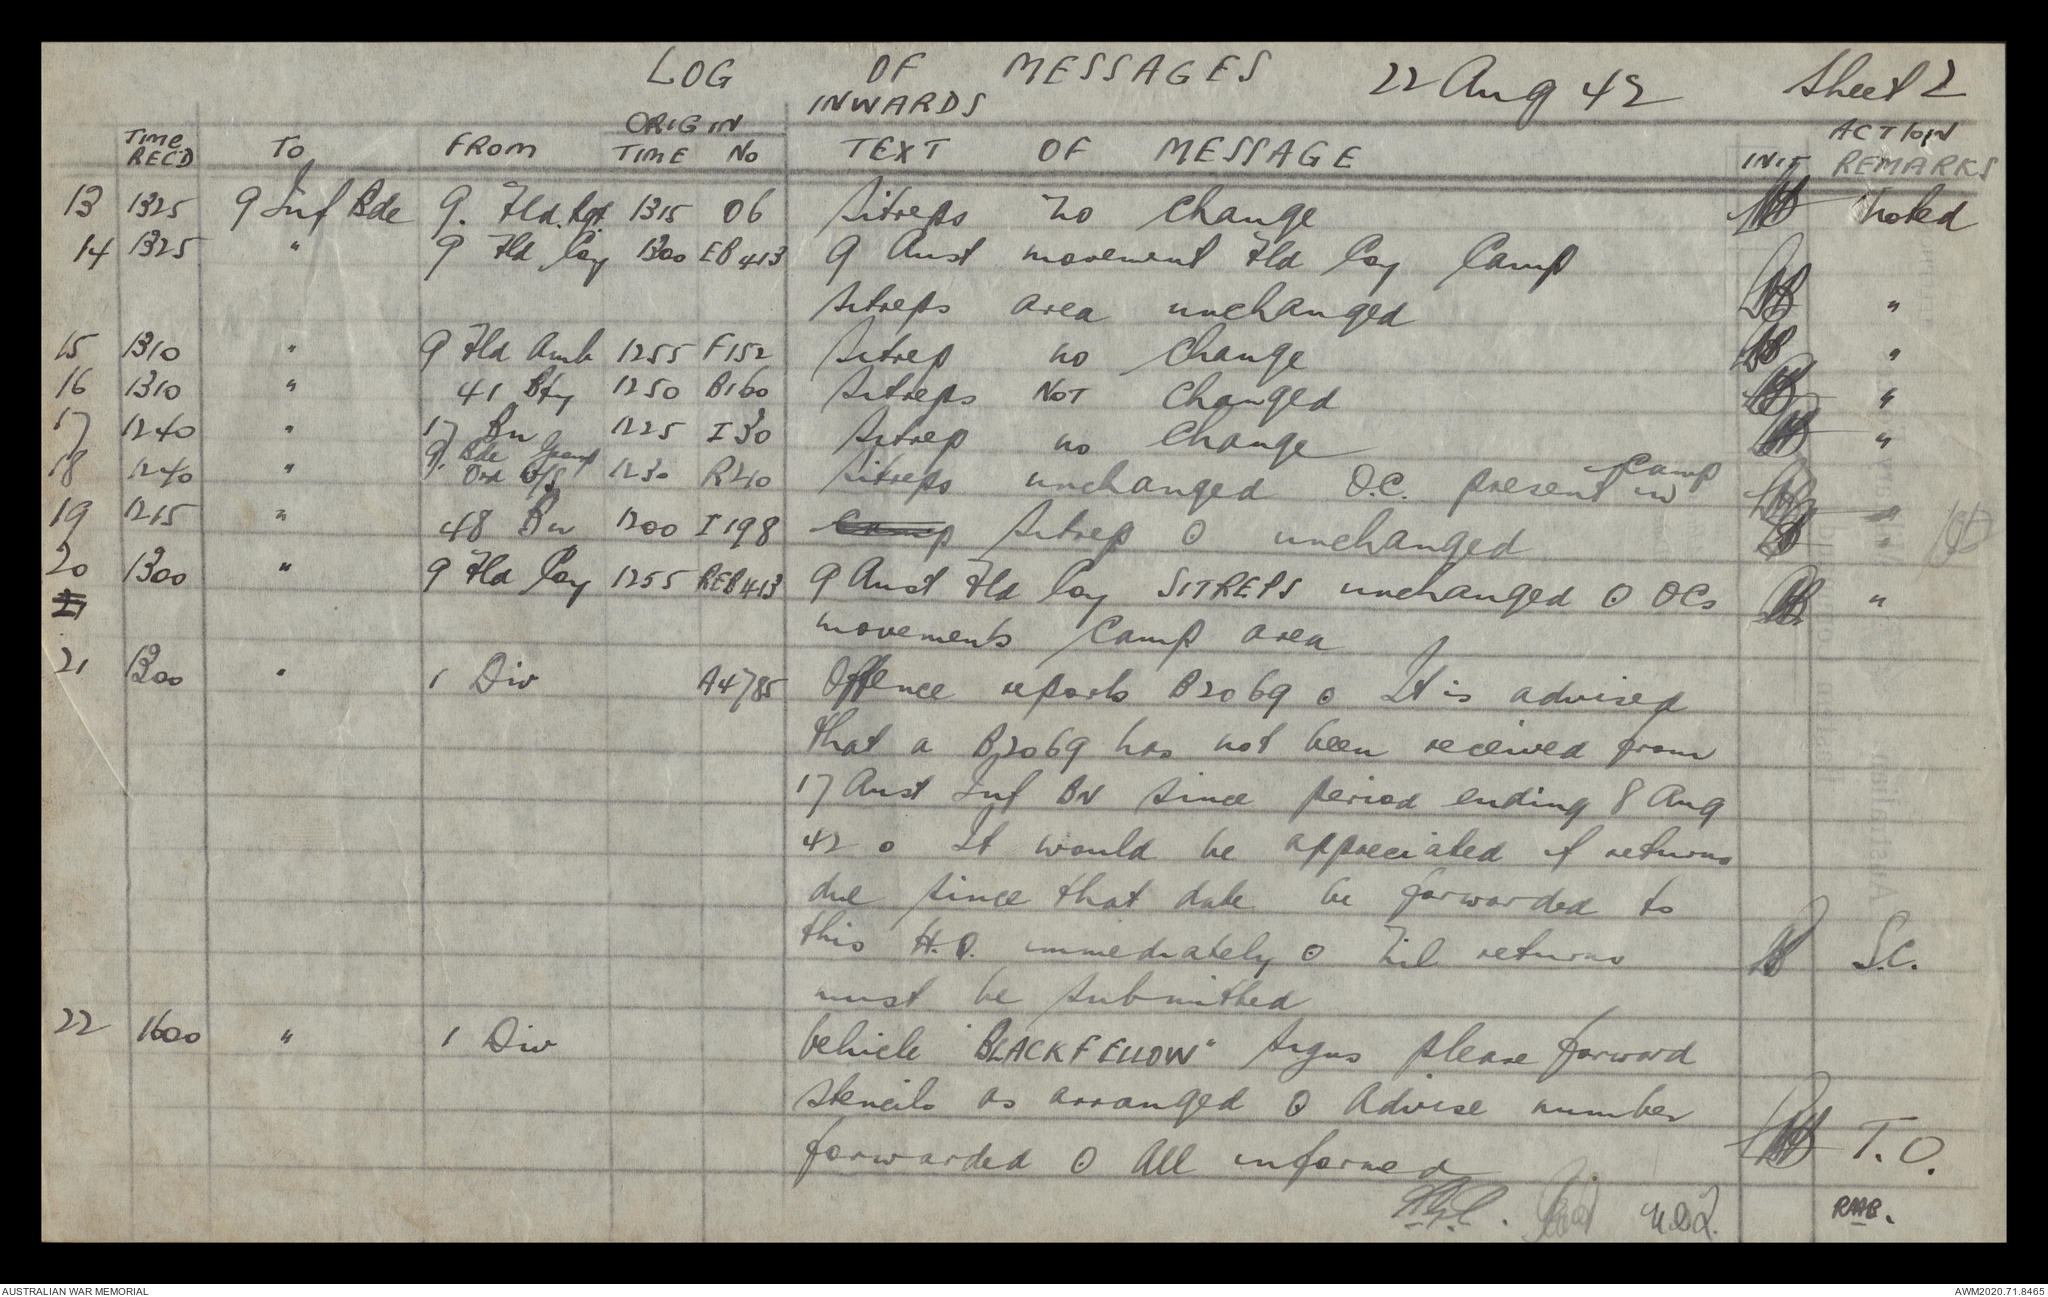 LOG OF MESSAGES 22 Aug 42 Sheet 2
INWARDS
TIME RECD TO FROM ORIGIN TIME No TEXT OF MESSAGE INIT ACTION REMARKS
13 1325 9 Inf Bde 9. Fld. Rgt 1315 O6 Sitreps no change Noted
14 1325 " 9 Fld Coy 1300 EB413 9 Aust movement Fld Coy Camp
Sitreps area unchanged "
15 1310 " 9 Fld Amb 1255 F152 Sitrep no change "
16 1310 " 41 Bty 1250 B160 Sitreps NOT changed "
17 1240 " 17 Bn 1225 I30 Sitrep no change "
18 1240 " 9 Bde Group Ord W/S 1230 R210 Sitreps unchanged O.C. present in Camp
19 1215 " 48 Bn 1200 I198 Camp Sitrep O unchanged "
20 1300 " 9 Fld Coy 1255 REB413 9 Aust Fld Coy SITREPS unchanged O OCs "
21
movements Camp area
21 1300 " 1 Div A4785 Offence reports B2069 o It is advised
that a B2069 has not been received from
17 Aust Inf BN since period ending 8 Aug
42 o It would be appreciated if returns
due since that date be forwarded to
this H.Q. immediately O Nil returns S.C.
must be submitted
22 1600 " 1 Div Vehicle "BLACKFELLOW" signs please forward
stencils as arranged O Advise number
forwarded O All informed T.O.
RMB.
AUSTRALIAN WAR MEMORIAL AWM2020.71.8465